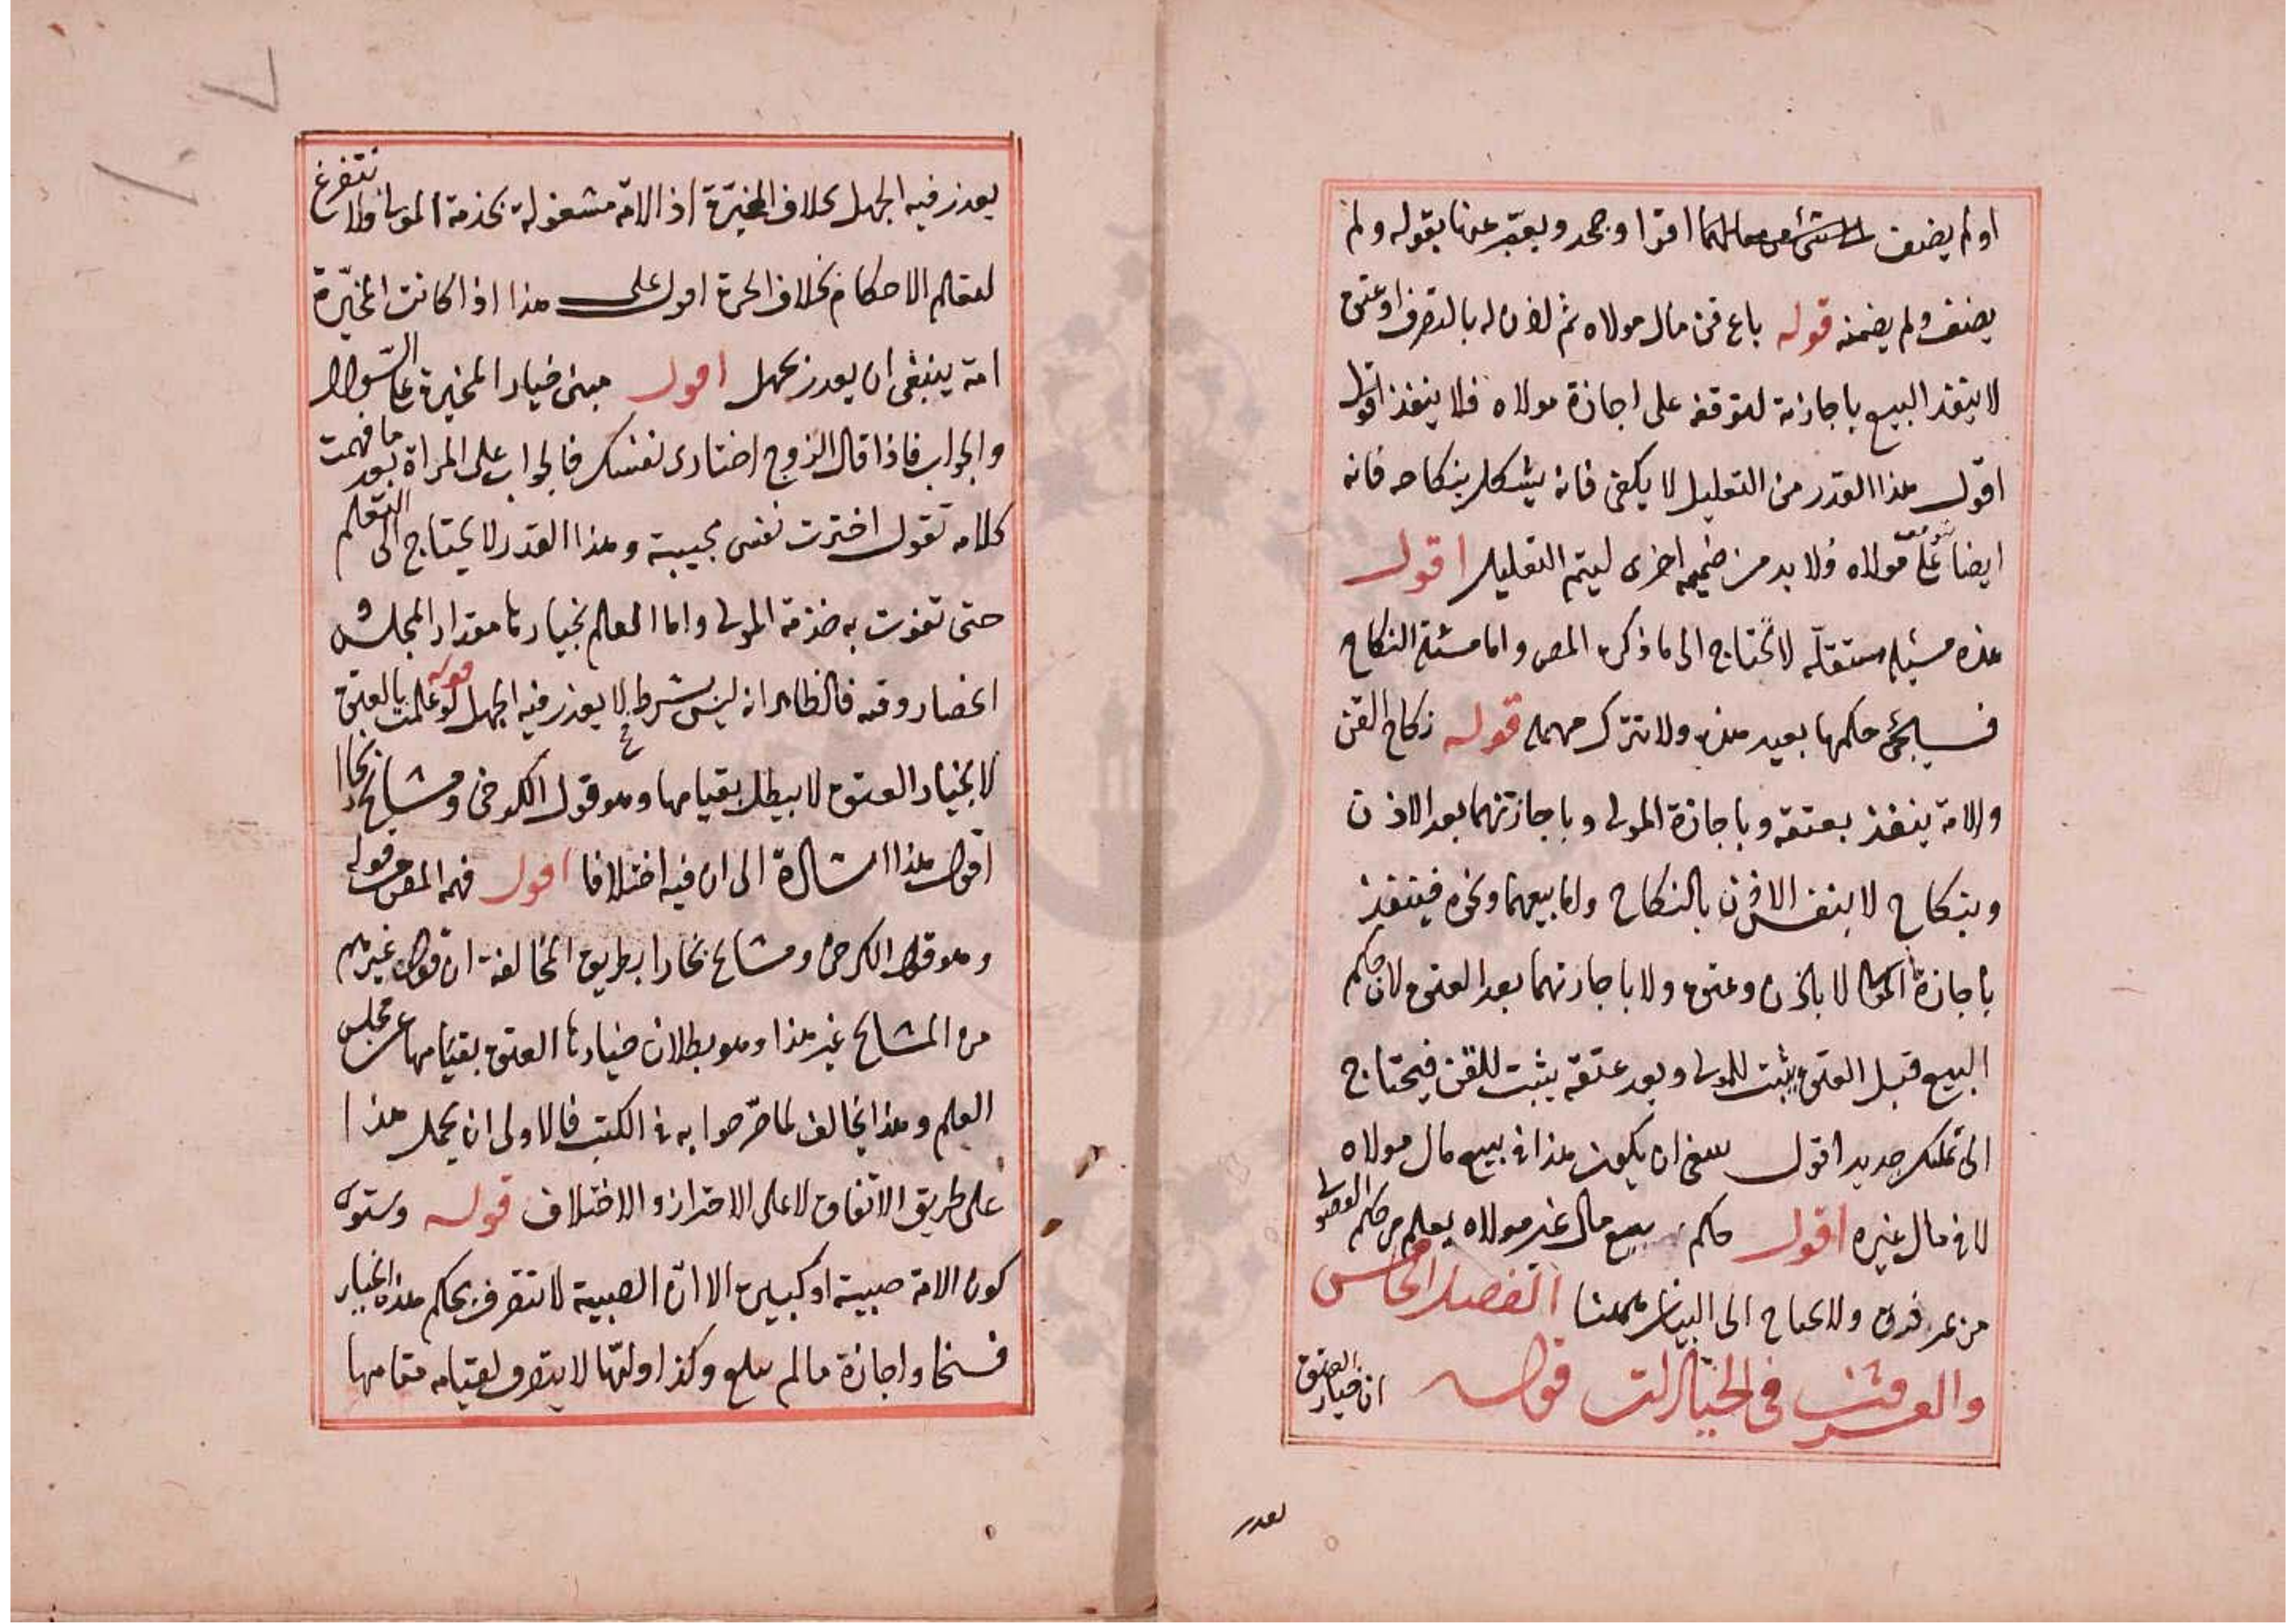 او لم يضف اقرا وجحد ويعبّر عنها بقوله ولم
يضف ولم يضمنه قوله باع قن مال مولاه ثم اذن له بالتصرف او عتق
لا ينفذ البيع باجازته لتوقفه على اجازة مولاه فلا ينفذ اقول
اقول هذا القدر من التعليل لا يكفى فانه يشكل بنكاحه فانه
ايضا توقف على مولاه فلا بد من ضميمه اخرى ليتم التعليل اقول
هذه مسئله مستقلّه لا تحتاج الى ما ذكره المص واما مسئلة النكاح
فسيجئ حكمها بعيد هذه ولا تترك مهمله قوله نكاح القن
والامة ينفذ بعتقه وباجازة المولى وباجازتهما بعد الاذن
وبنكاح لا بنفس الاذن بالنكاح واما بيعهما ونحوه فينفذ
باجازة المولى لا باذن وعتق ولا باجازتهما بعد العتق لان حكم
البيع قبل العتق يثبت للمولى وبعد عتقه يثبت للقن فيحتاج
الى تملك جديد اقول ينبغى ان يكون هذا فى بيع مال مولاه
لا فى مال غيره اقول حكم بيع مال غير مولاه يعلم من حكم الفضولى
من غير فرق ولا يحتاج الى البيان ههنا الفصل الخامس
والعشرون فى الخيارات قوله ان خيار العتق
يعذر
يعذر فيه الجهل بخلاف المخيّرة اذ الامة مشغولة بخذمة المولى ولا تتفرغ
لتعلم الاحكام بخلاف الحرة اقول على هذا اذا كانت المخيّرة
امة ينبغى ان يعذر بجهل اقول مبنى خيار المخيرة على السّوال
والجواب فاذا قال الزوج اختارى نفسك فالجواب على المراة بعد ما فهمت
كلامه تقول اخترت نفسى مجيبة وهذا القدر لا يحتاج الى التعلم
حتى تفوت به خذمة المولى واما العلم بخيارها مقدار المجلس و
انحصار وقته فالظاهر انه ليس بشرط لا يعذر فيه الجهل قوله لو علمت بالعتق
لا بخيار العتق لا يبطل بقيامها وهو قول الكرخى ومشايخ بخارا
اقول هذا اشارة الى ان فيه اختلافا اقول فهم المص من قوله
وهو قول الكرخى ومشايخ بخارا بطريق المخالفة ان قول غيرهم
من المشايخ غير هذا وهو بطلان خيارها العتق بقيامها عن مجلس
العلم وهذا يخالف لما صرّحوا به فى الكتب فالاولى ان يحمل هذا
على طريق الاتفاق لا على الاحتراز والاختلاف قوله وستوى
كون الامة صبية او كبيرة الا انّ الصبية لا تتصرف بحكم هذه الخيار
فسخا واجازة ما لم يبلغ وكذا وليّها لا يتصرف لقيامه مقامها